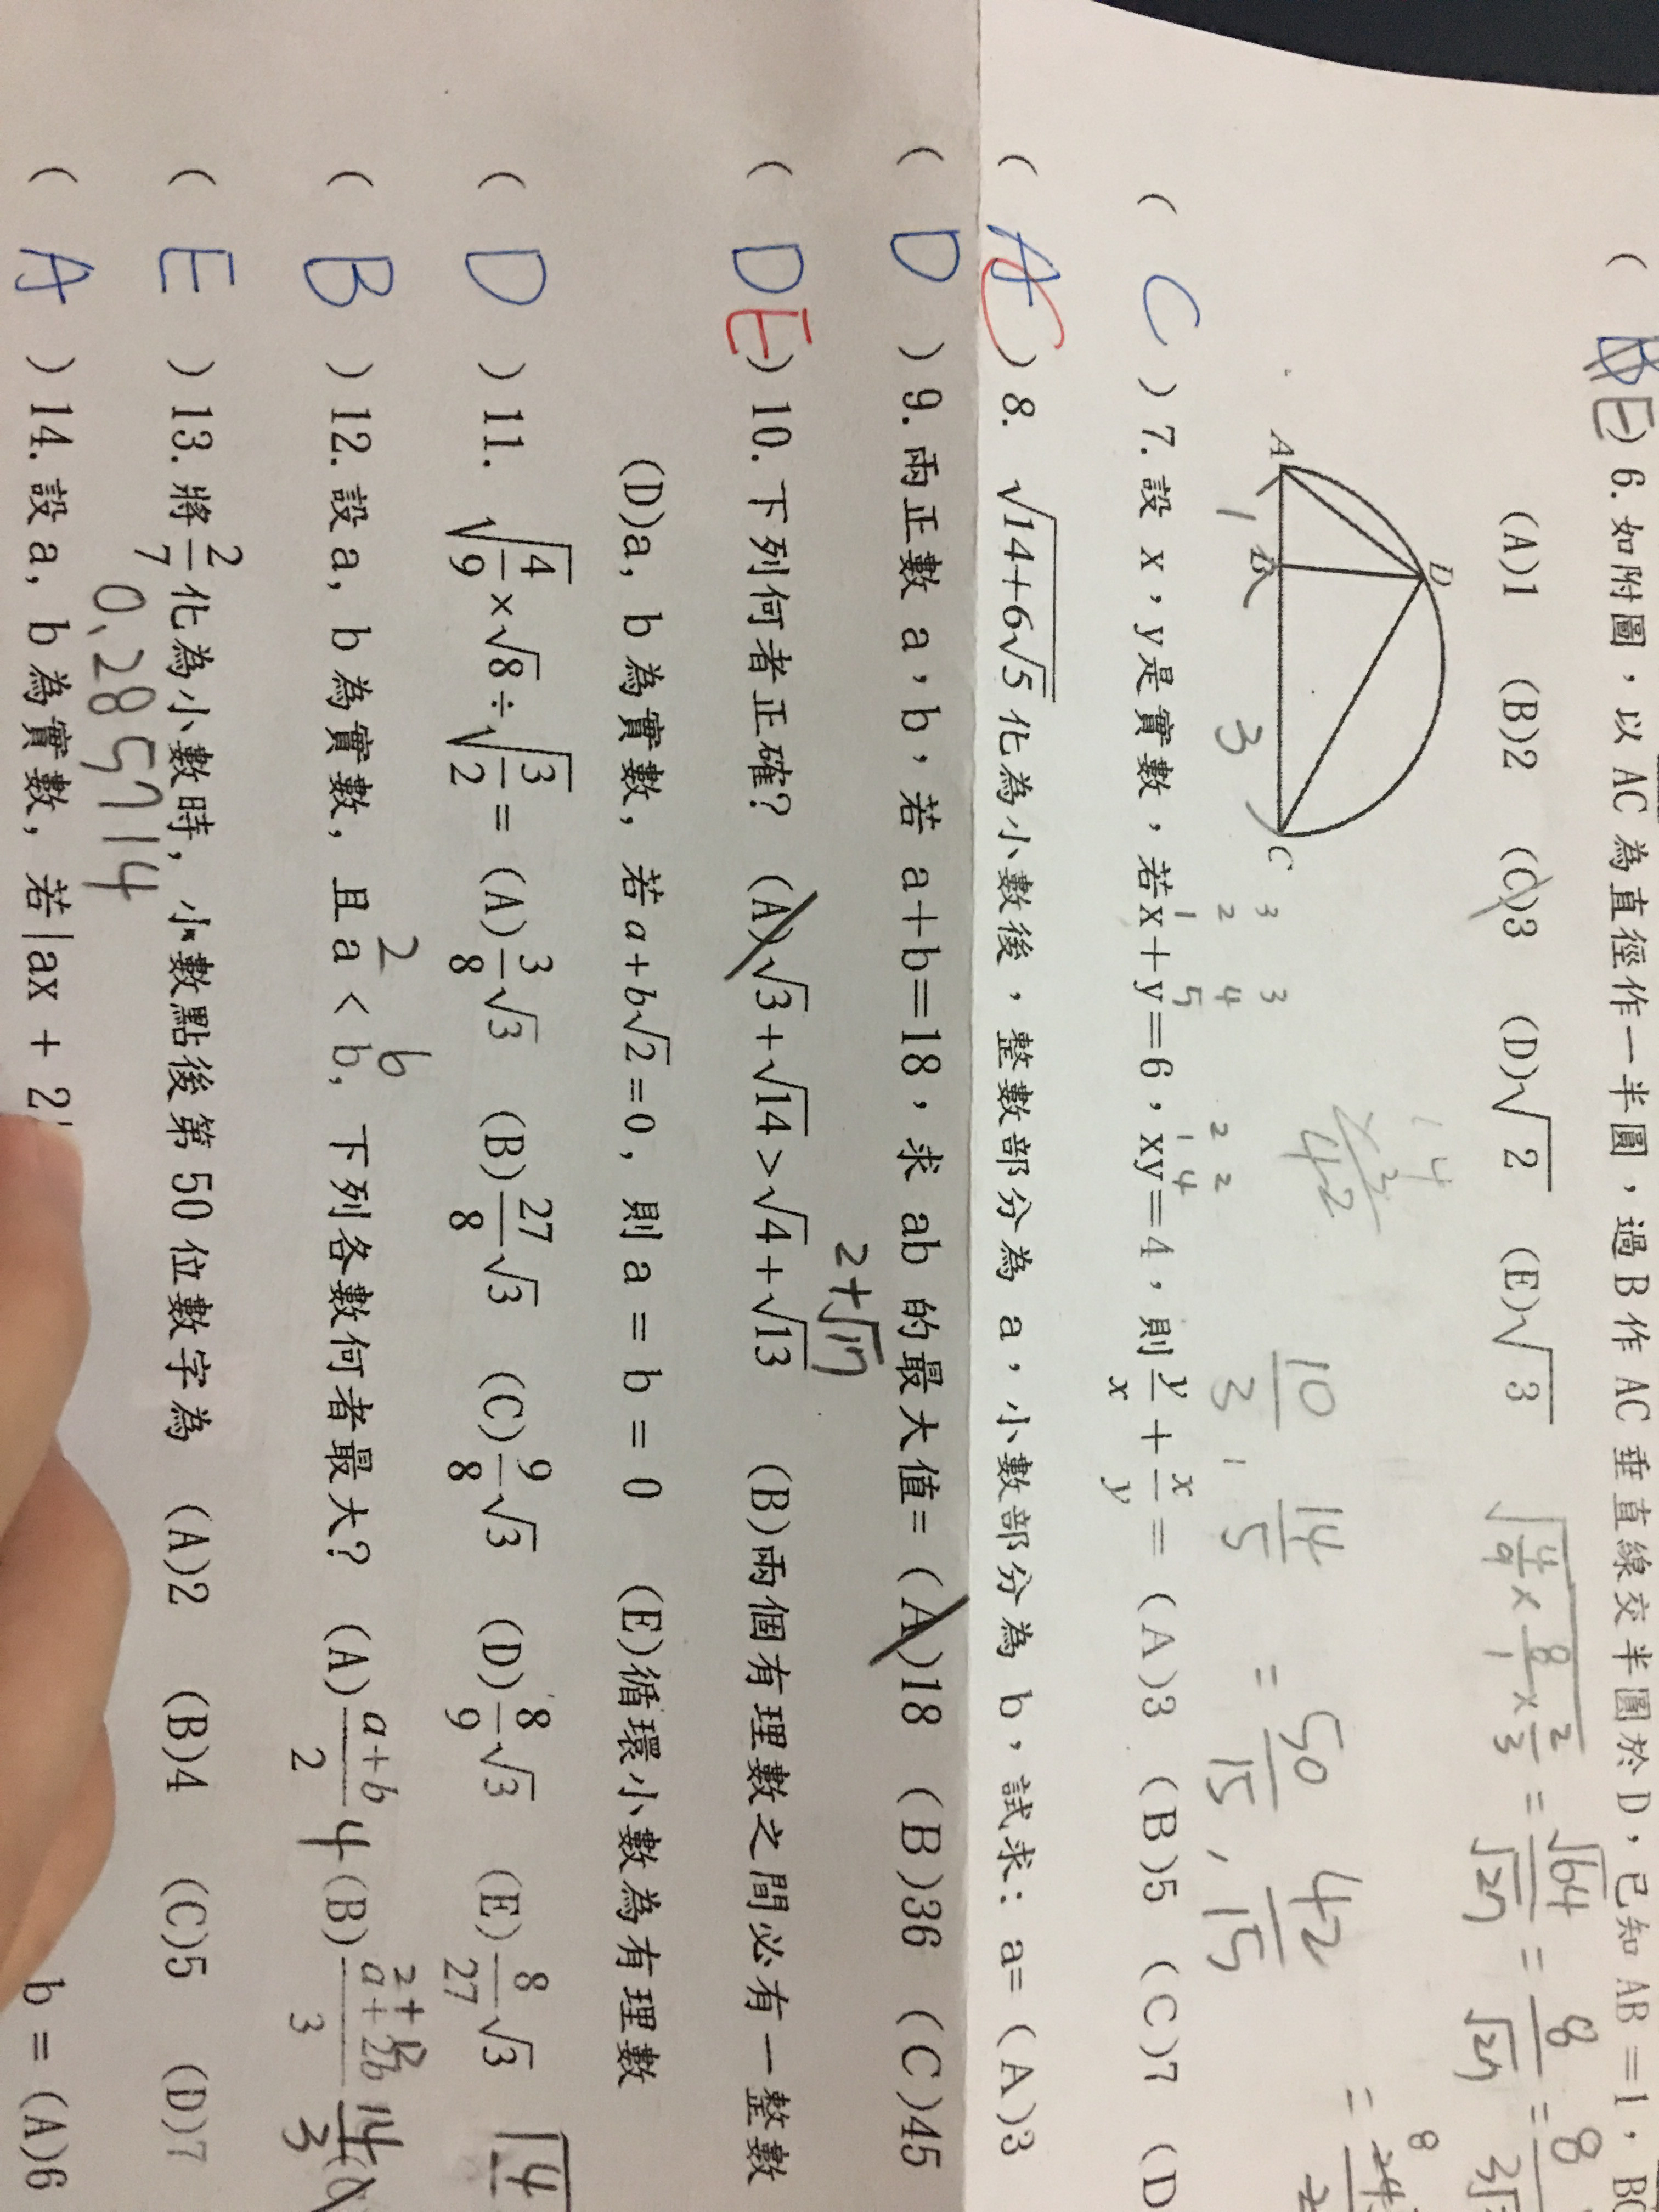 ( E ) 6.如附圖，以 AC 為直徑作一半圓，過 B 作 AC 垂直線交半圓於 D，已知 AB=1，BC
(A)1 (B)2 (C)3 (D)√2 (E)√3
√(4/9 × 8/1 × 2/3) = √64/√27 = 8/√27 = 8
A B C D
1 3
10/3 14/5 = 50/15 , 42/15
( C ) 7.設 x，y是實數，若x+y=6，xy=4，則 y/x + x/y = (A)3 (B)5 (C)7 (D
( A C ) 8. √(14+6√5) 化為小數後，整數部分為 a，小數部分為 b，試求：a= (A)3
( D ) 9.兩正數 a，b，若 a+b=18，求 ab 的最大值= (A)18 (B)36 (C)45
2+√17
( D E ) 10.下列何者正確? (A)√3+√14>√4+√13 (B)兩個有理數之間必有一整數
(D)a, b 為實數, 若 a+b√2=0, 則 a = b = 0 (E)循環小數為有理數
( D ) 11. √(4/9)×√8÷√(3/2) = (A)3/8√3 (B)27/8√3 (C)9/8√3 (D)8/9√3 (E)8/27√3
2 6
( B ) 12.設 a, b 為實數, 且 a < b, 下列各數何者最大? (A)(a+b)/2 4 (B)(a+2b)/3 14/3
( E ) 13.將 2/7 化為小數時, 小數點後第 50 位數字為 (A)2 (B)4 (C)5 (D)7
0.285714
( A ) 14.設 a, b 為實數, 若 |ax + 2 b = (A)6